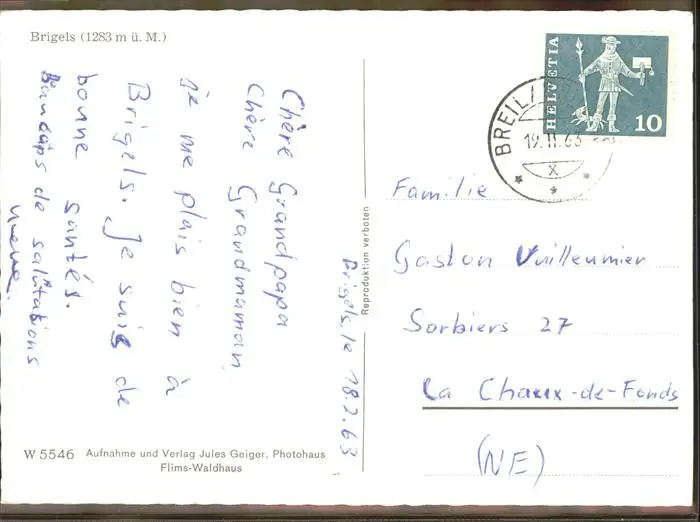 Brigels (1283 m ü. M.)
HELVETIA
10
BREIL/
19.II.63
X
Brigels, le 18.2.63
Chère Grandpapa
Chère Grandmaman,
je me plais bien à
Brigels. Je suis de
bonne santés.
de salutations
Familie
Gaston Vuilleumier
Sorbiers 27
La Chaux-de-Fonds
(NE)
Reproduktion verboten
W 5546 Aufnahme und Verlag Jules Geiger, Photohaus
Flims-Waldhaus